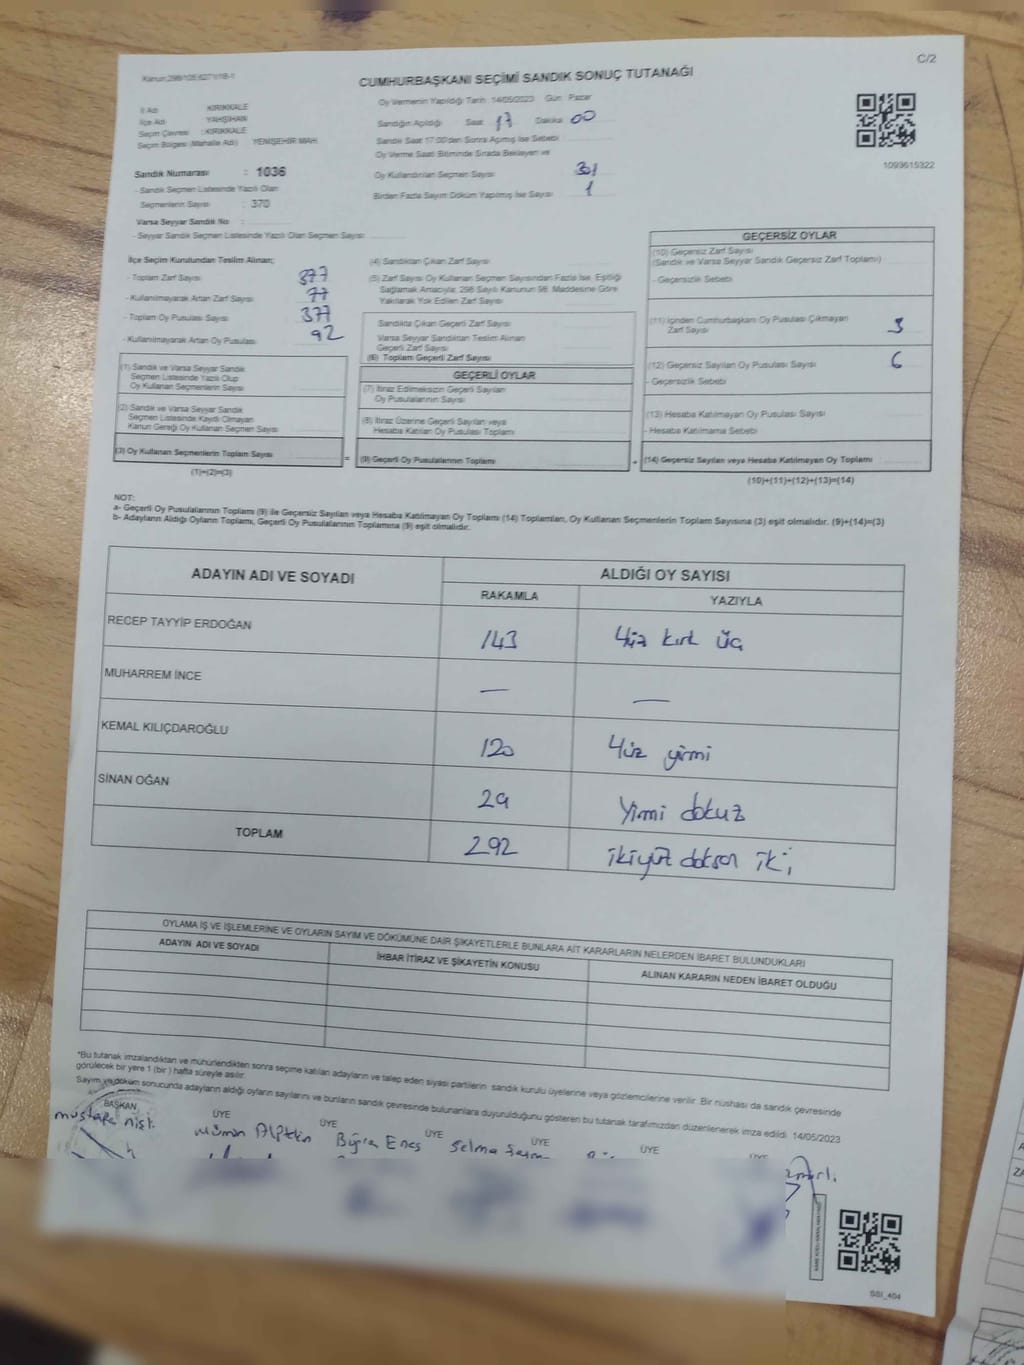 C/2
Kanun:298/105;6271/18-1
CUMHURBAŞKANI SEÇİMİ SANDIK SONUÇ TUTANAĞI
İl Adı KIRIKKALE
İlçe Adı YAHŞİHAN
Seçim Çevresi : KIRIKKALE
Seçim Bölgesi (Mahalle Adı) YENİŞEHİR MAH.
Oy Vermenin Yapıldığı Tarih: 14/05/2023 Gün: Pazar
Sandığın Açıldığı Saat 17 Dakika 00
Sandık Saat 17:00'den Sonra Açılmış İse Sebebi
Oy Verme Saati Bitiminde Sırada Bekleyen ve
Oy Kullandırılan Seçmen Sayısı 301
Birden Fazla Sayım Döküm Yapılmış İse Sayısı 1
1093615322
Sandık Numarası : 1036
- Sandık Seçmen Listesinde Yazılı Olan
Seçmenlerin Sayısı : 370
Varsa Seyyar Sandık No :
- Seyyar Sandık Seçmen Listesinde Yazılı Olan Seçmen Sayısı
İlçe Seçim Kurulundan Teslim Alınan;
- Toplam Zarf Sayısı 377
- Kullanılmayarak Artan Zarf Sayısı 77
- Toplam Oy Pusulası Sayısı 377
- Kullanılmayarak Artan Oy Pusulası 92
(1) Sandık ve Varsa Seyyar Sandık
Seçmen Listesinde Yazılı Olup
Oy Kullanan Seçmenlerin Sayısı
(2) Sandık ve Varsa Seyyar Sandık
Seçmen Listesinde Kayıtlı Olmayan
Kanun Gereği Oy Kullanan Seçmen Sayısı
(3) Oy Kullanan Seçmenlerin Toplam Sayısı =
(1)+(2)=(3)
(4) Sandıktan Çıkan Zarf Sayısı
(5) Zarf Sayısı Oy Kullanan Seçmen Sayısından Fazla İse, Eşitliği
Sağlamak Amacıyla, 298 Sayılı Kanunun 98. Maddesine Göre
Yakılarak Yok Edilen Zarf Sayısı
Sandıkta Çıkan Geçerli Zarf Sayısı
Varsa Seyyar Sandıktan Teslim Alınan
Geçerli Zarf Sayısı
(6) Toplam Geçerli Zarf Sayısı
GEÇERLİ OYLAR
(7) İtiraz Edilmeksizin Geçerli Sayılan
Oy Pusulalarının Sayısı
(8) İtiraz Üzerine Geçerli Sayılan veya
Hesaba Katılan Oy Pusulası Toplamı
(9) Geçerli Oy Pusulalarının Toplamı +
GEÇERSİZ OYLAR
(10) Geçersiz Zarf Sayısı
(Sandık ve Varsa Seyyar Sandık Geçersiz Zarf Toplamı)
- Geçersizlik Sebebi
(11) İçinden Cumhurbaşkanı Oy Pusulası Çıkmayan
Zarf Sayısı 3
(12) Geçersiz Sayılan Oy Pusulası Sayısı 6
- Geçersizlik Sebebi
(13) Hesaba Katılmayan Oy Pusulası Sayısı
- Hesaba Katılmama Sebebi
(14) Geçersiz Sayılan veya Hesaba Katılmayan Oy Toplamı
(10)+(11)+(12)+(13)=(14)
NOT:
a- Geçerli Oy Pusulalarının Toplamı (9) ile Geçersiz Sayılan veya Hesaba Katılmayan Oy Toplamı (14) Toplamları, Oy Kullanan Seçmenlerin Toplam Sayısına (3) eşit olmalıdır. (9)+(14)=(3)
b- Adayların Aldığı Oyların Toplamı, Geçerli Oy Pusulalarının Toplamına (9) eşit olmalıdır.
ADAYIN ADI VE SOYADI ALDIĞI OY SAYISI
RAKAMLA YAZIYLA
RECEP TAYYİP ERDOĞAN 143 Yüz kırk üç
MUHARREM İNCE — —
KEMAL KILIÇDAROĞLU 120 Yüz yirmi
SİNAN OĞAN 29 Yirmi dokuz
TOPLAM 292 ikiyüz doksan iki
OYLAMA İŞ VE İŞLEMLERİNE VE OYLARIN SAYIM VE DÖKÜMÜNE DAİR ŞİKAYETLERLE BUNLARA AİT KARARLARIN NELERDEN İBARET BULUNDUKLARI
ADAYIN ADI VE SOYADI İHBAR İTİRAZ VE ŞİKAYETİN KONUSU ALINAN KARARIN NEDEN İBARET OLDUĞU
*Bu tutanak imzalandıktan ve mühürlendikten sonra seçime katılan adayların ve talep eden siyasi partilerin sandık kurulu üyelerine veya gözlemcilerine verilir. Bir nüshası da sandık çevresinde
görülecek bir yere 1 (bir) hafta süreyle asılır.
Sayım ve döküm sonucunda adayların aldığı oyların sayılarını ve bunların sandık çevresinde bulunanlara duyurulduğunu gösteren bu tutanak tarafımızdan düzenlenerek imza edildi. 14/05/2023
BAŞKAN ÜYE ÜYE ÜYE ÜYE ÜYE ÜYE
Buğra Enes Selma
SSI_404